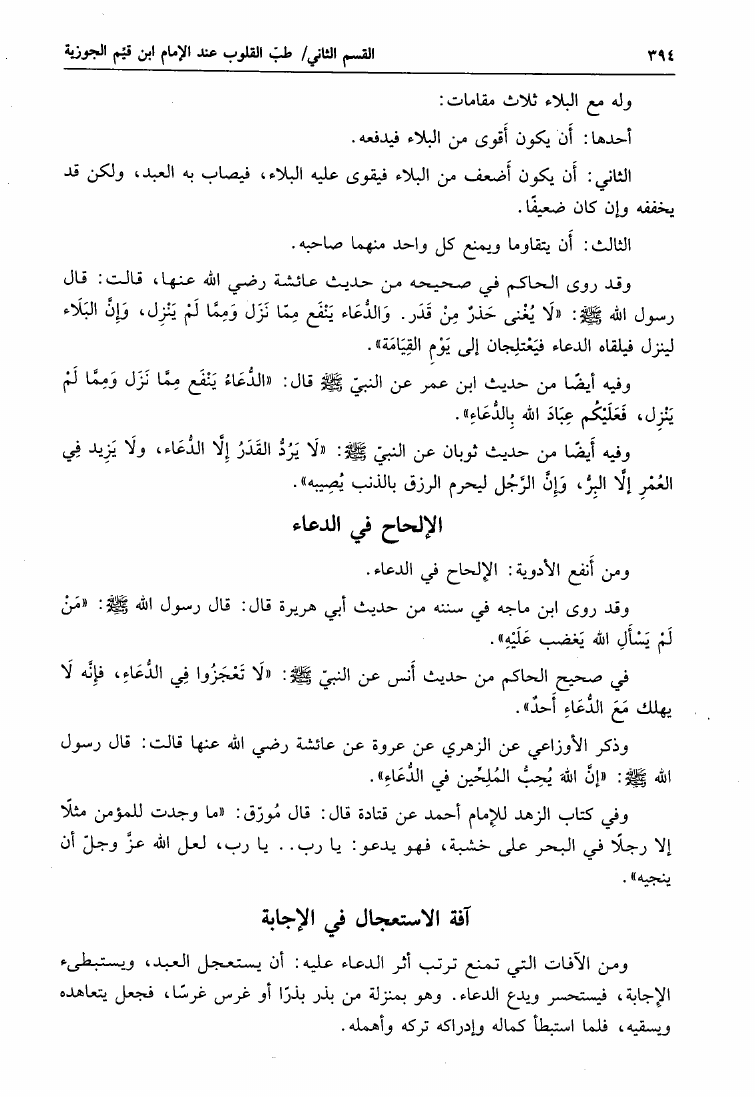 ٣٩٤ القسم الثاني/ طبّ القلوب عند الإمام ابن قيّم الجوزية
وله مع البلاء ثلاث مقامات:
أحدها: أن يكون أقوى من البلاء فيدفعه.
الثاني: أن يكون أضعف من البلاء فيقوى عليه البلاء، فيصاب به العبد، ولكن قد
يخففه وإن كان ضعيفًا.
الثالث: أن يتقاوما ويمنع كل واحد منهما صاحبه.
وقد روى الحاكم في صحيحه من حديث عائشة رضي الله عنها، قالت: قال
رسول الله ﷺ: «لَا يُغْنى حَذرٌ مِنْ قَدَر. وَالدُّعَاء يَنْفَع مِمّا نَزَل وَمِمَّا لَمْ يَنْزِل، وَإِنَّ البَلَاء
لينزل فيلقاه الدعاء فيَعْتلِجان إلى يَوْمِ القِيَامَة».
وفيه أيضًا من حديث ابن عمر عن النبيّ ﷺ قال: «الدُّعَاءُ يَنْفَع مِمَّا نَزَل وَمِمَّا لَمْ
يَنْزِل، فَعَلَيْكُم عِبَادَ الله بِالدُّعَاءِ».
وفيه أيضًا من حديث ثوبان عن النبيّ ﷺ: «لَا يَرُدُّ القَدَرُ إِلَّا الدُّعَاء، ولَا يَزِيد فِي
العُمْرِ إِلَّا البِرُّ، وَإِنَّ الرَّجُل ليحرم الرزق بالذنب يُصِيبه».
الإلحاح في الدعاء
ومن أنفع الأدوية: الإلحاح في الدعاء.
وقد روى ابن ماجه في سننه من حديث أبي هريرة قال: قال رسول الله ﷺ: «مَنْ
لَمْ يَسْأَلِ الله يَغضب عَلَيْهِ».
في صحيح الحاكم من حديث أنس عن النبيّ ﷺ: «لَا تَعْجَزُوا فِي الدُّعَاءِ، فإنَّه لَا
يهلك مَعَ الدُّعَاءِ أَحدٌ».
وذكر الأوزاعي عن الزهري عن عروة عن عائشة رضي الله عنها قالت: قال رسول
الله ﷺ: «إنَّ اللهَ يُحِبُّ المُلِحِّين في الدُّعَاءِ».
وفي كتاب الزهد للإمام أحمد عن قتادة قال: قال مُورّق: «ما وجدت للمؤمن مثلًا
إلا رجلًا في البحر على خشبة، فهو يدعو: يا رب.. يا رب، لعل الله عزَّ وجلّ أن
ينجيه».
آفة الاستعجال في الإجابة
ومن الآفات التي تمنع ترتب أثر الدعاء عليه: أن يستعجل العبد، ويستبطىء
الإجابة، فيستحسر ويدع الدعاء. وهو بمنزلة من بذر بذرًا أو غرس غرسًا، فجعل يتعاهده
ويسقيه، فلما استبطأ كماله وإدراكه تركه وأهمله.